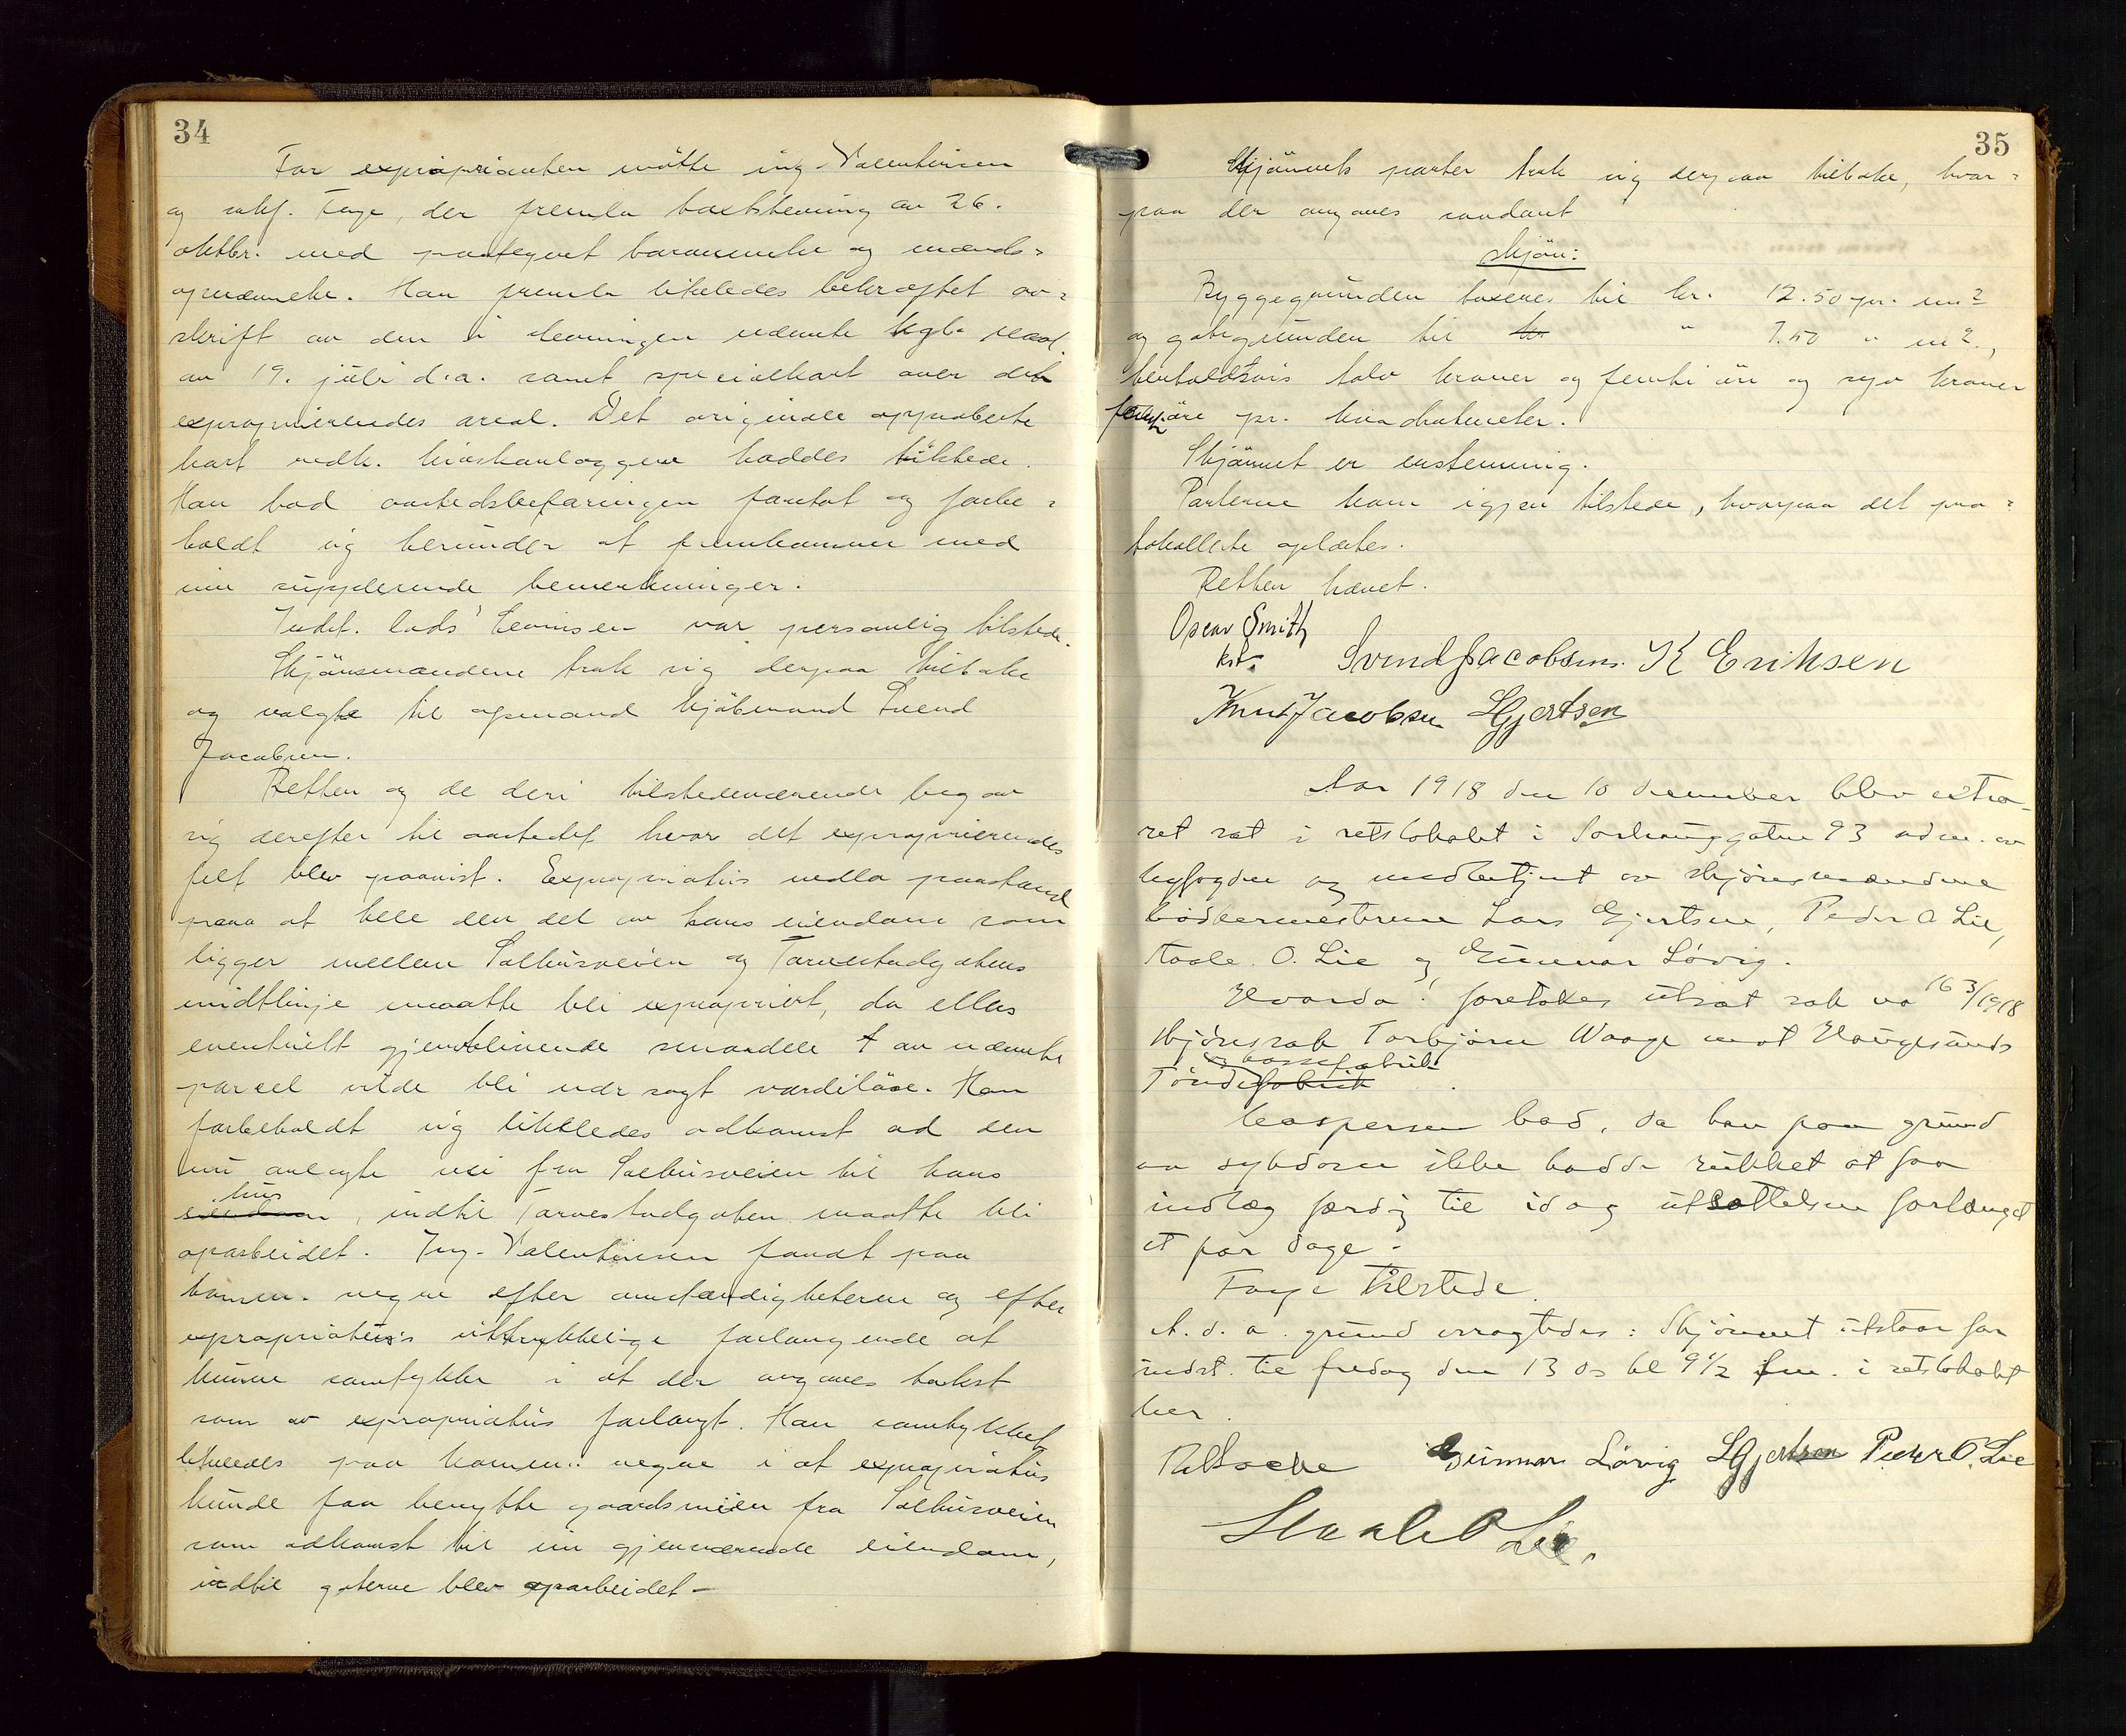 34
For exproprianten mötte ing. Valentinsen
og sakf. Fage, der fremla takststevning av 26.
oktbr. med paategnet berammelse og mænds-
opnævnelse. Han fremla likeledes bekræftet av-
skrift av den i stevningen nævnte kgl. resol.
av 19. juli d.a. samt specialkart over det
exproprierendes areal. Det originale approberte
kart vedk. havneanlæggene haddes tilstede.
Han bad aastedsbefaringen foretat og forbe-
holdt sig herunder at fremkomme med
sine supplerende bemerkninger.
Indst. lods Levinsen var personlig tilstede.
Skjönsmændene trak sig derpaa tilbake
og valgte til opmand kjöbmand Svend
Jacobsen.
Retten og de deri tilstedeværende begav
sig derefter til aastedet hvor det exproprierendes
felt blev paavist. Expropriatus nedla paastand
paa at hele den del av hans eiendom som
ligger mellem Salhusveien og Tarvestadgatens
midtlinje maatte bli expropriert, da ellers
eventuelt gjenblivende smaadele av nævnte
parcel vilde bli nær sagt værdilöse. Han
forbeholdt sig likeledes adkomst ad den
nu anlagte vei fra Salhusveien til hans
hus
eiendom, indtil Tarvestadgaten maatte bli
oparbeidet. Ing. Valentinsen fandt paa
komm. vegne efter omstændigheterne og efter
expropriatus's uttrykkelige forlangende at
kunne samtykke i at der avgaves takst
som av expropriatus forlangt. Han samtykket
likeledes paa komm. vegne i at expropriatus
kunde faa benytte gaardsveien fra Salhusveien
som adkomst til sin gjenværende eiendom,
indtil gaterne blev oparbeidet –
35
Skjönnets parter trak sig derpaa tilbake, hvor-
paa der avgaves saadant
skjön:
Byggegrunden taxeres til kr. 12.50 pr. m2
og gategrunden til kr. " 7.50 " m2.,
henholdsvis tolv kroner og femti öre og syv kroner
femti öre pr. kvadratmeter.
Skjönnet er enstemmig.
Parterne kom igjen tilstede, hvorpaa det pro-
tokollerte oplæstes.
Retten hævet.
Oscar Smith
kst.
Svend Jacobsen. K Eriksen
Knut Jacobsen LGjertsen
Aar 1918 den 10 december blev extra-
ret sat i retslokalet i Sörhauggaten 93 adm. av
byfogden og medbetjent av skjönsmændene
bödkermestrene Lars Gjertsen, Peder O Lie,
Staale O. Lie og Gunnar Lövig.
Hvorda: foretokes utsat sak no 16 3/1918
Skjönssak Torbjörn Waage mot Haugesunds
og kassefabrik
Töndefabrik
Caspersen bad, da han paa grund
av sykdom ikke hadde rukket at faa
indlæg færdig til idag utsættelsen forlænget
et par dage –
Fage tilstede.
A. d. a. grund eragtedes: Skjönnet utstaar for
indst. til fredag den 13 ds kl 9 1/2 fm. i retslokalet
her.
Gunnar Lövig LGjertsen Peder O. Lie
Staale O Lie.